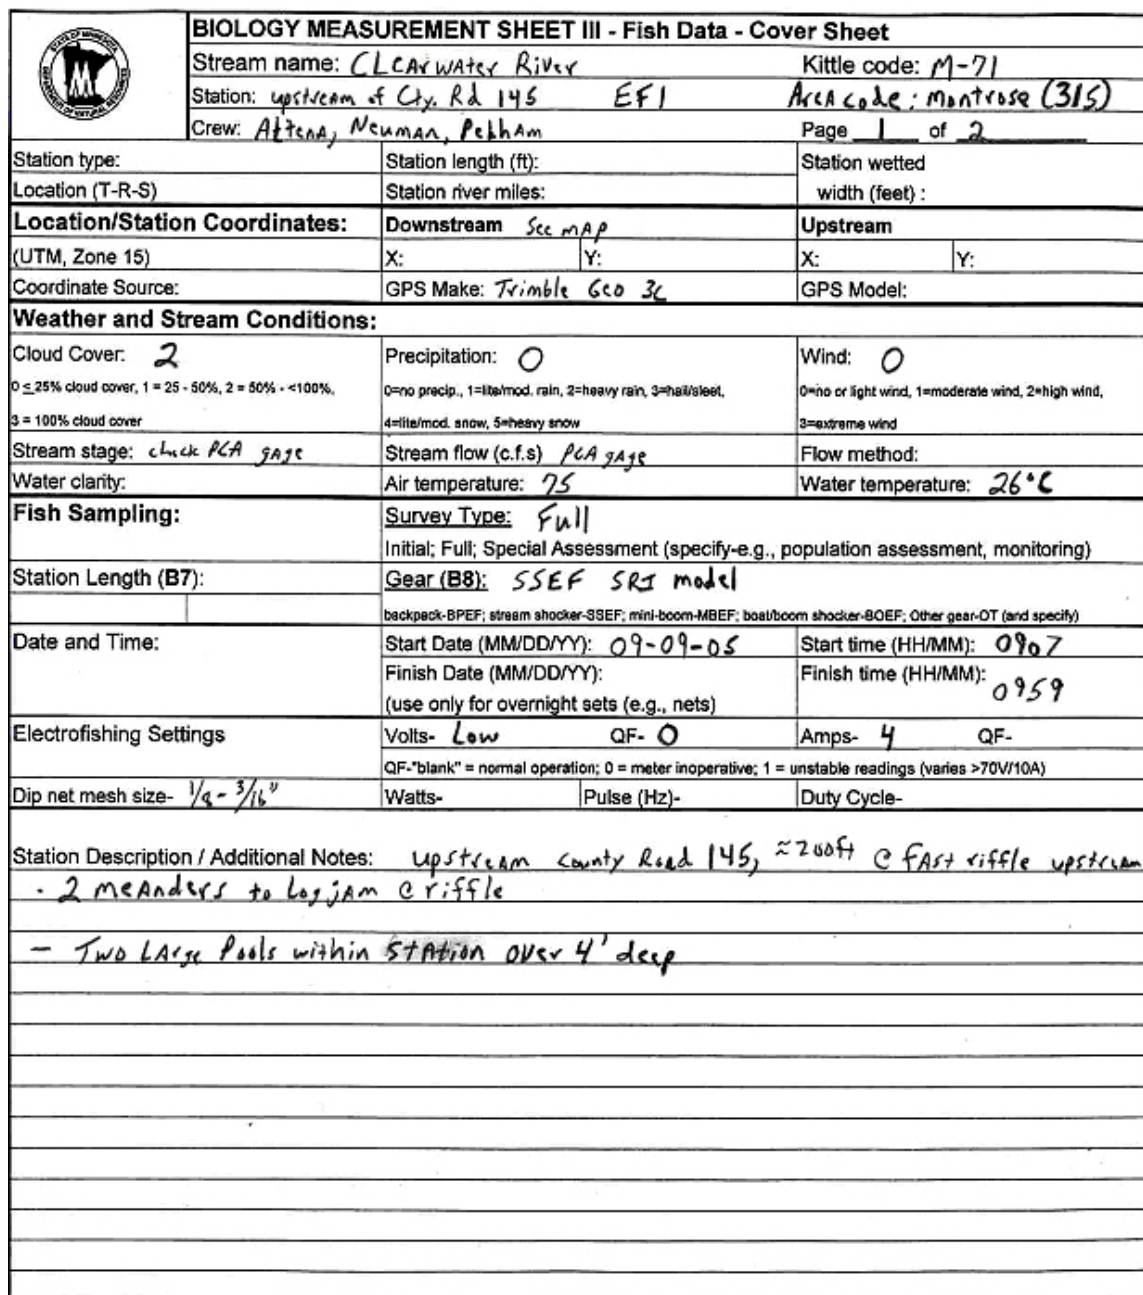 STATE OF MINNESOTA
DEPARTMENT OF NATURAL RESOURCES
BIOLOGY MEASUREMENT SHEET III - Fish Data - Cover Sheet
Stream name: CLearwater River Kittle code: M-71
Station: upstream of Cty. Rd 145 EF1 Area code: Montrose (315)
Crew: Altena, Neuman, Pelham Page 1 of 2
Station type: Station length (ft): Station wetted
Location (T-R-S) Station river miles: width (feet) :
Location/Station Coordinates: Downstream See map Upstream
(UTM, Zone 15) X: Y: X: Y:
Coordinate Source: GPS Make: Trimble Geo 3c GPS Model:
Weather and Stream Conditions:
Cloud Cover: 2 Precipitation: 0 Wind: 0
0 ≤ 25% cloud cover, 1 = 25 - 50%, 2 = 50% - <100%, 0=no precip., 1=lite/mod. rain, 2=heavy rain, 3=hail/sleet, 0=no or light wind, 1=moderate wind, 2=high wind,
3 = 100% cloud cover 4=lite/mod. snow, 5=heavy snow 3=extreme wind
Stream stage: check PCA gage Stream flow (c.f.s) PCA gage Flow method:
Water clarity: Air temperature: 75 Water temperature: 26°C
Fish Sampling: Survey Type: Full
Initial; Full; Special Assessment (specify-e.g., population assessment, monitoring)
Station Length (B7): Gear (B8): SSEF SRI model
backpack-BPEF; stream shocker-SSEF; mini-boom-MBEF; boat/boom shocker-BOEF; Other gear-OT (and specify)
Date and Time: Start Date (MM/DD/YY): 09-09-05 Start time (HH/MM): 0907
Finish Date (MM/DD/YY): Finish time (HH/MM): 0959
(use only for overnight sets (e.g., nets)
Electrofishing Settings Volts- Low QF- 0 Amps- 4 QF-
QF-"blank" = normal operation; 0 = meter inoperative; 1 = unstable readings (varies >70V/10A)
Dip net mesh size- 1/8 - 3/16" Watts- Pulse (Hz)- Duty Cycle-
Station Description / Additional Notes: upstream county Road 145, ≈200ft @ fast riffle upstream
· 2 meanders to Logjam @ riffle
- Two Large Pools within Station over 4' deep